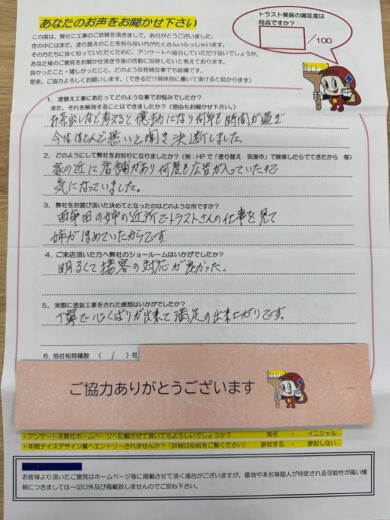 あなたのお声をお聞かせ下さい
トラスト美装の満足度は
何点ですか？
/100
この度は、弊社に工事のご依頼を頂きまして、ありがとうございました。
世の中にはまだ、塗り替えのことを知らない方がたくさんいらっしゃいます。
その方たちに良く知っていただくために、アンケートへ協力していただけないでしょうか。
あなた様のご意見をお聞かせ頂き今後の活動に反映したいと考えております。
良かったこと・嬉しかったこと、どのような些細な事でも結構です。
是非、ご協力よろしくお願いします。(できるだけ具体的に書いて頂けると助かります)
1．塗替え工事にあたってどのような事でお悩みでしたか？
また、それを解消することはできましたか？（理由もお聞かせ下さい。）
お茶出しなど考えると億劫になり何年も時間が過ぎ
今はほとんど無いと聞き決断しました。
2．どのようにして弊社をお知りになりましたか？(例：HPで「塗り替え 筑後市」で検索したらでてきたから 等)
家の近くに店舗があり何度も広告が入っていたので
気になっていました。
3．弊社をお選び頂いた決めてとなったのはどのような所ですか？
の姉の近所でトラストさんの仕事を見て
姉が褒めていたからです。
4．ご来店頂いた方へ弊社のショールームはいかがでしたか？
明るくて接客の対応が良かった。
5．実際に塗装工事をされた感想はいかがでしたか？
丁寧で心くばりが出来て満足の出来上がりです。
6．他社相見積数（ ）社
ご協力ありがとうございます
・アンケートを弊社ホームページへ記載させて頂いてもよろしいでしょうか？ 実名 ・ イニシャル
・年間ナイスデザイン賞へエントリーされませんか？(詳細は別紙をご覧ください) 参加する ・ 参加しない
お客様より頂いたご意見はホームページ等に掲載させて頂く場合がございますが、番地や本名等個人が特定される可能性が高い情
報につきましては一切口外及び掲載致しませんのでご安心下さい。